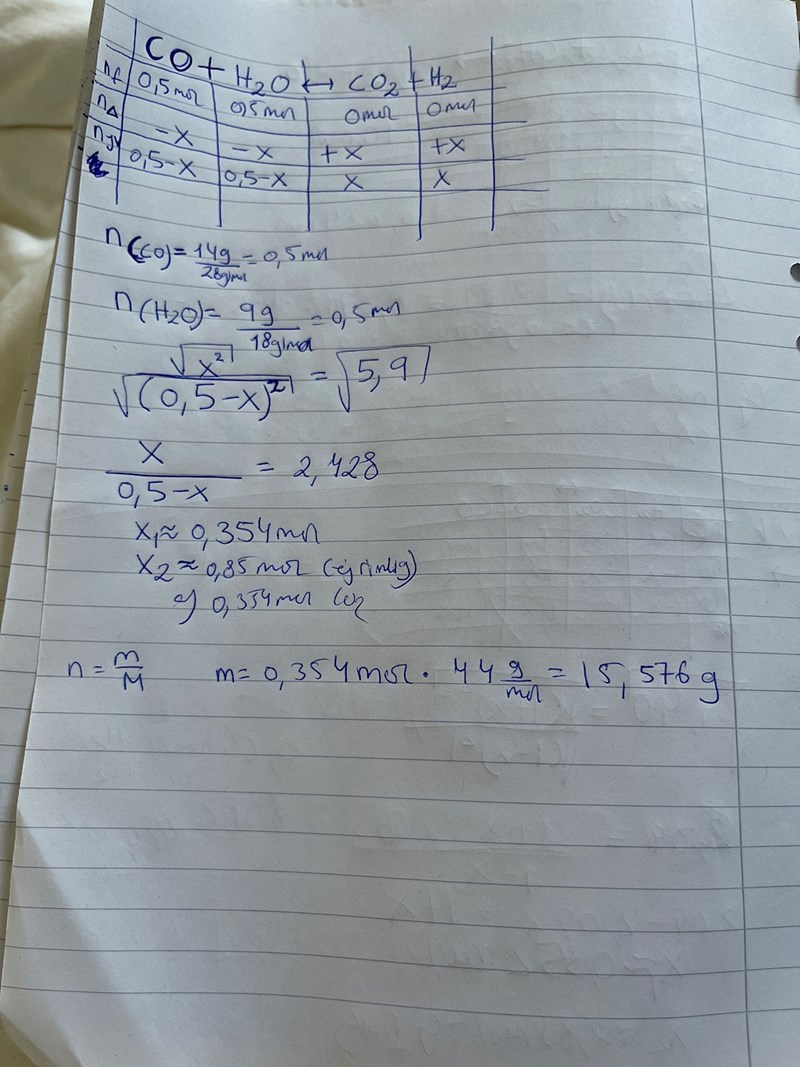 CO + H2O ↔ CO2 + H2
nf 0,5mol 0,5mol 0mol 0mol
nΔ -x -x +x +x
njv 0,5-x 0,5-x x x
n(CO) = 14g/28g/mol = 0,5mol
n(H2O) = 9g/18g/mol = 0,5mol
√x²/√(0,5-x)² = √5,9
x/0,5-x = 2,428
x1 ≈ 0,354mol
x2 ≈ 0,85mol (ej rimlig)
0,354mol CO2
n = m/M m = 0,354mol · 44 g/mol = 15,576 g